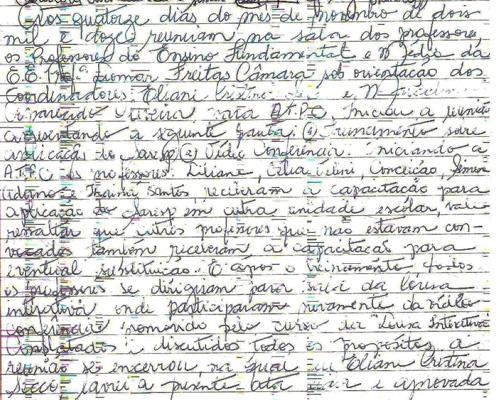 Aos quatorze dias do mês de novembro de dois
mil e doze, reuniram na sala dos professores,
os Professores do Ensino Fundamental e Médio da
E.E. Profª Leomar Freitas Câmara sob orientação dos
Coordenadores: Eliani Cristina e
Aparecido Oliveira para A.T.P.C. Iniciou a reunião
apresentando a seguinte pauta: (1) Treinamento sobre
aplicação do Saresp (2) Vídeo Conferência. Iniciando a
A.T.P.C. os professores: Liliane, Célia, Conceição,
e Santos, receberam a capacitação para
aplicação do Saresp em outra unidade escolar, vale
ressaltar que outros professores que não estavam con-
vocados também receberam a capacitação para
eventual substituição. E após o treinamento todos
os professores se dirigiram para sala da lousa
interativa onde participaram novamente da vídeo
conferência promovido pelo curso da "Lousa Interativa"
Completados e discutidos todos os propósitos a
reunião se encerrou, na qual eu Eliani Cristina
lavrei a presente ata e aprovada